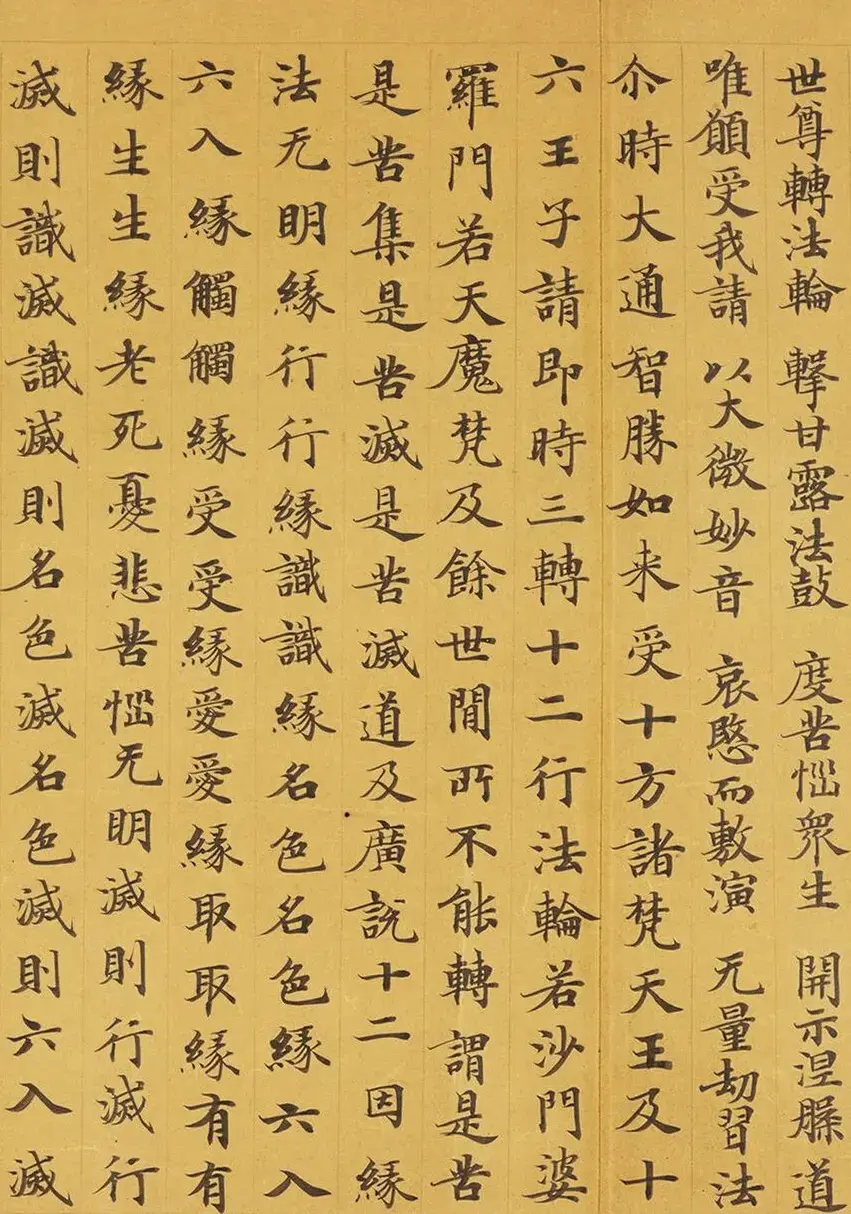 世尊轉法輪 擊甘露法鼓 度苦惱衆生 開示涅槃道
唯願受我請 以大微妙音 哀愍而敷演 无量劫習法
尒時大通智勝如来受十方諸梵天王及十
六王子請即時三轉十二行法輪若沙門婆
羅門若天魔梵及餘世間所不能轉謂是苦
是苦集是苦滅是苦滅道及廣說十二因緣
法无明緣行行緣識識緣名色名色緣六入
六入緣觸觸緣受受緣愛愛緣取取緣有有
緣生生緣老死憂悲苦惱无明滅則行滅行
滅則識滅識滅則名色滅名色滅則六入滅